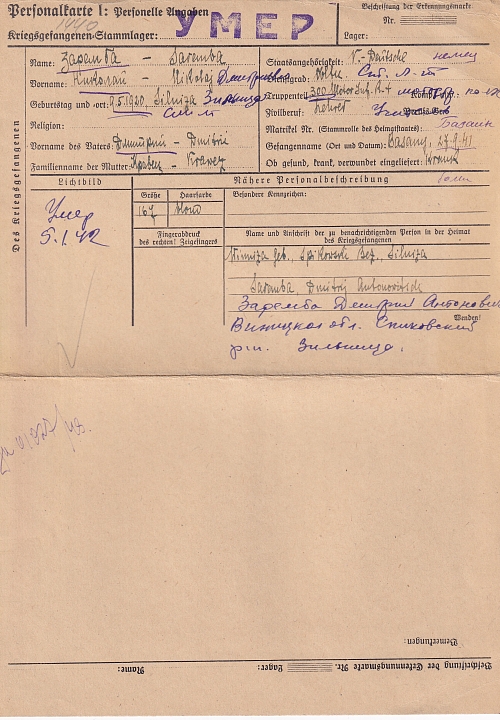 Personalkarte I: Personelle Angaben
УМЕР
Beschriftung der Erkennungsmarke
Nr.
Kriegsgefangenen-Stammlager:
Lager:
Des Kriegsgefangenen
Name: Заремба – Saremba
Staatsangehörigkeit: V.-Deutsche немец
Vorname: Николай – Nikolaj
Dienstgrad:
Geburtstag und -ort: 9.5.1920, Silniza
Truppenteil: 300 Motor.
Religion:
Zivilberuf: Lehrer
Matrikel Nr. (Stammrolle des Heimatstaates):
Vorname des Vaters: Дмитрий – Dmitrij
Gefangennahme (Ort und Datum): Basang, 27.9.41
Familienname der Mutter:
Ob gesund, krank, verwundet eingeliefert: krank
Lichtbild
Nähere Personalbeschreibung
Größe
Haarfarbe
Besondere Kennzeichen:
167
blond
Умер
5.1.42
Fingerabdruck
des rechten! Zeigefingers
Name und Anschrift der zu benachrichtigenden Person in der Heimat
des Kriegsgefangenen
Silniza
Saremba, Dmitrij Antonowitsch
Заремба Дмитрий Антонович
Wenden!
Виницкая обл. Спиковский
р-н. Зильница.
Bemerkungen:
Beschriftung der Erkennungsmarke Nr.
Lager:
Name: